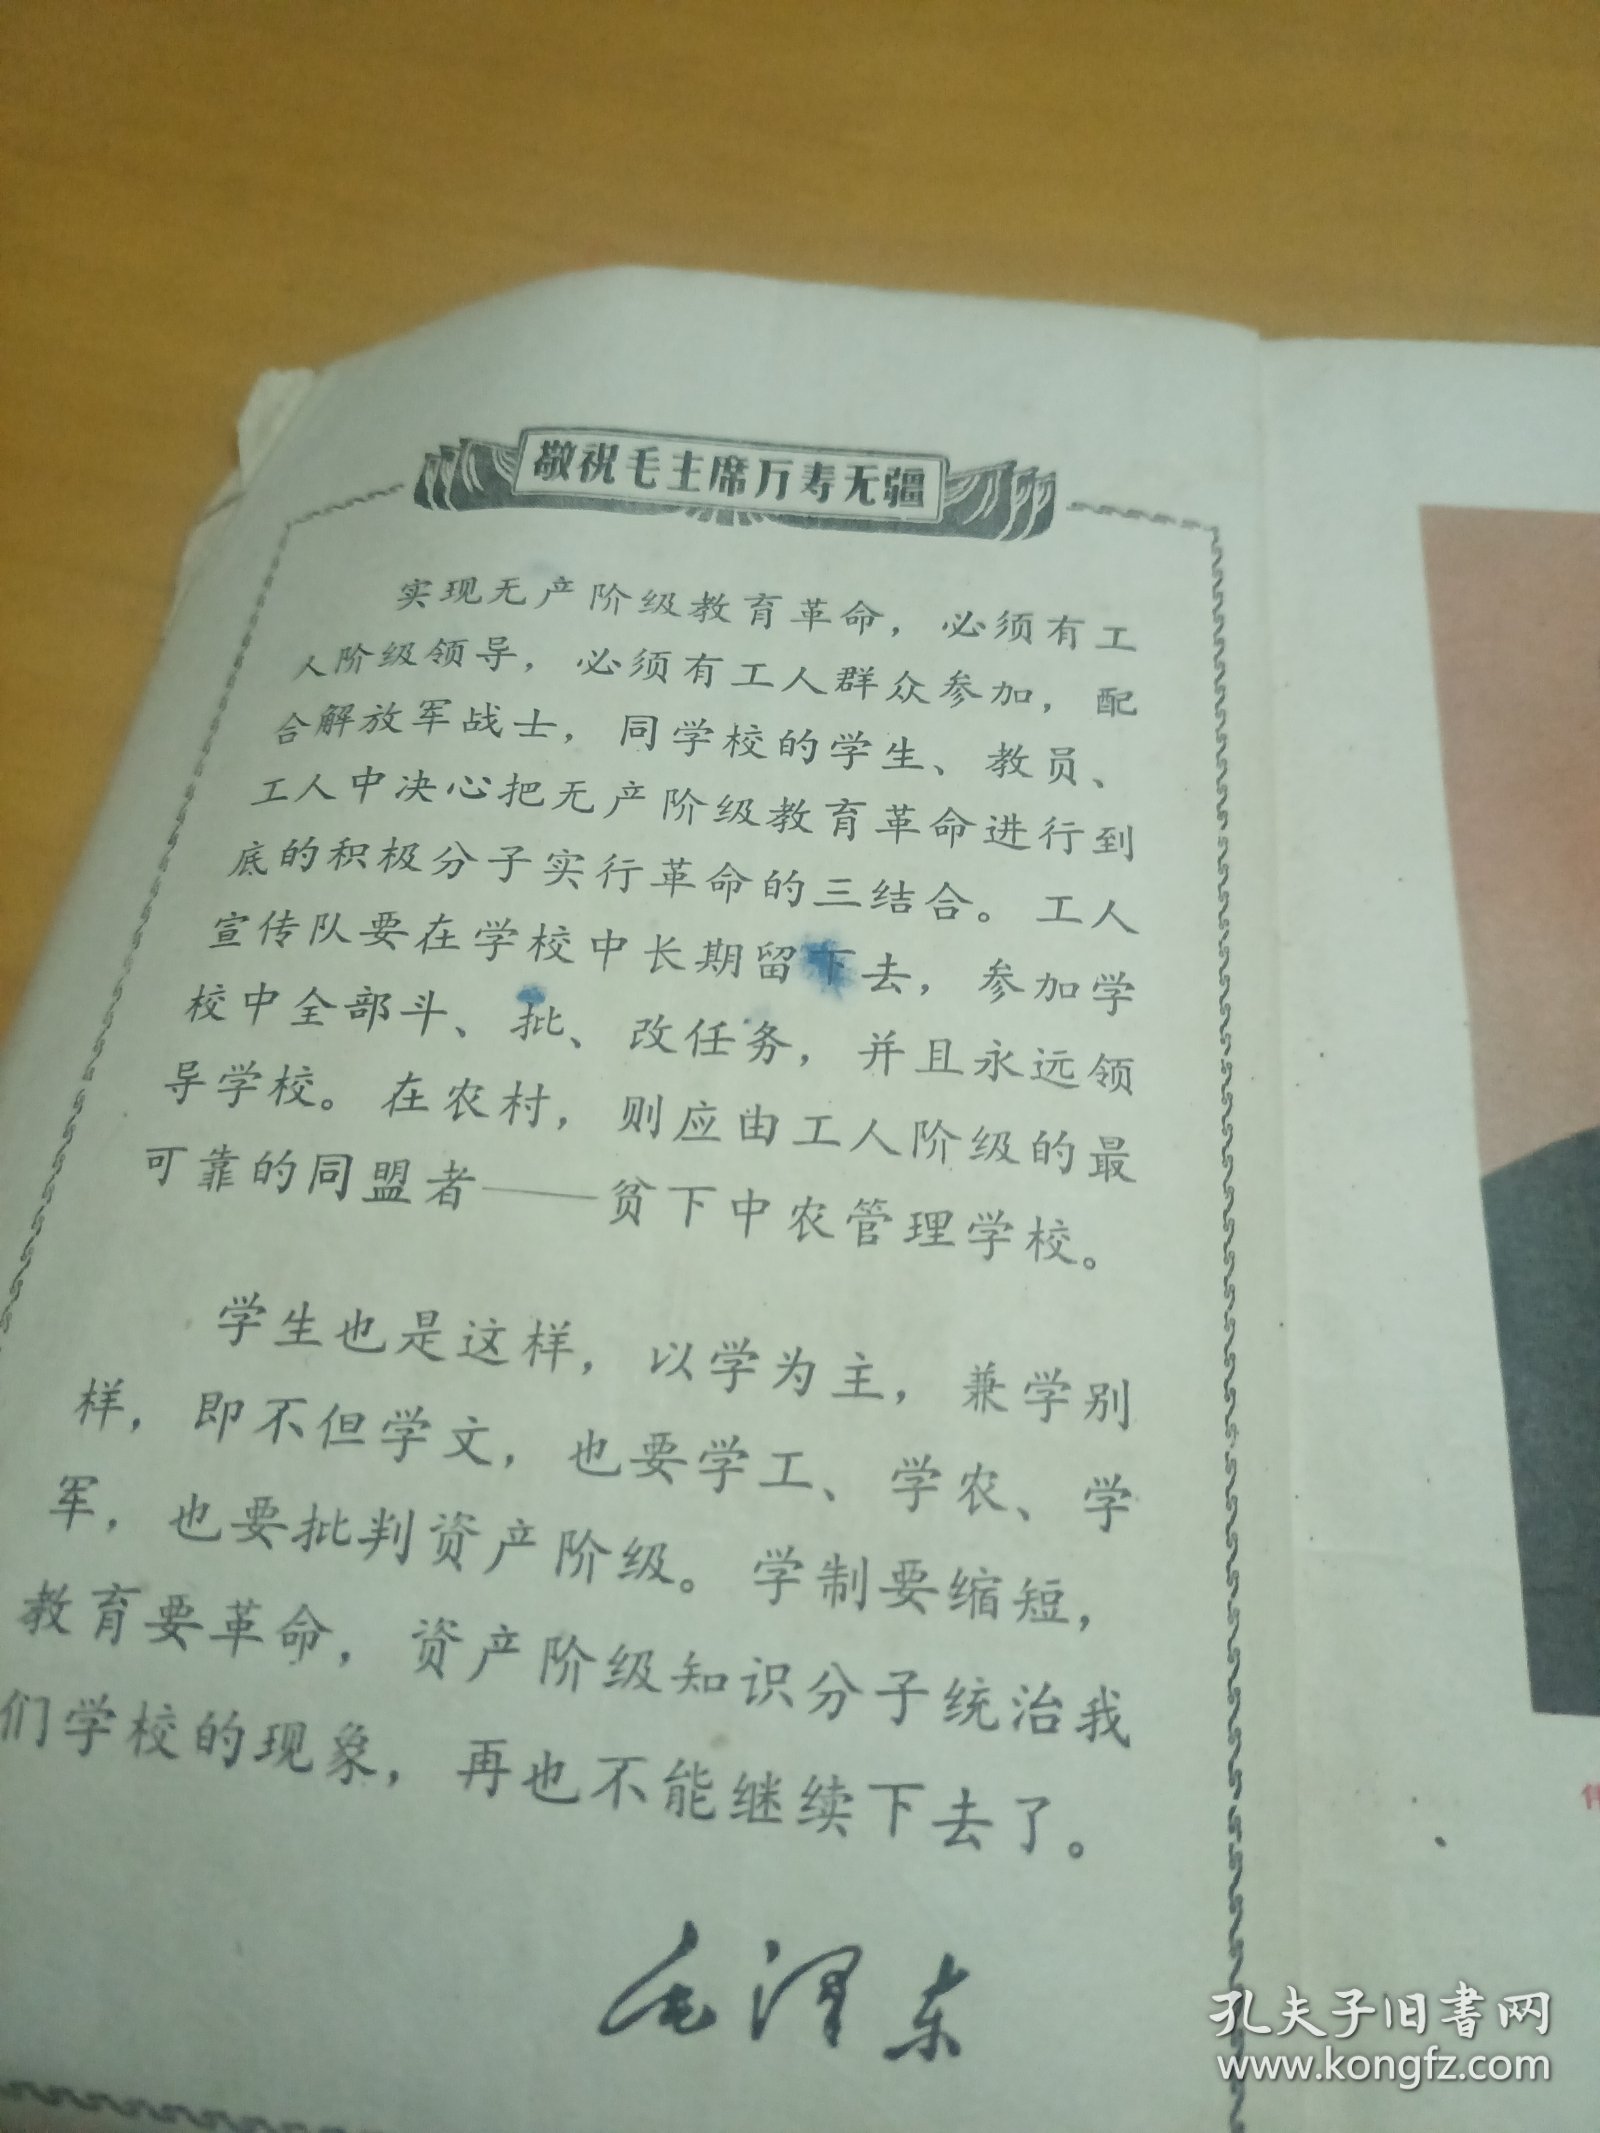 敬祝毛主席万寿无疆
实现无产阶级教育革命，必须有工
人阶级领导，必须有工人群众参加，配
合解放军战士，同学校的学生、教员、
工人中决心把无产阶级教育革命进行到
底的积极分子实行革命的三结合。工人
宣传队要在学校中长期留下去，参加学
校中全部斗、批、改任务，并且永远领
导学校。在农村，则应由工人阶级的最
可靠的同盟者——贫下中农管理学校。
学生也是这样，以学为主，兼学别
样，即不但学文，也要学工、学农、学
军，也要批判资产阶级。学制要缩短，
教育要革命，资产阶级知识分子统治我
们学校的现象，再也不能继续下去了。
毛泽东
孔夫子旧书网
www.kongfz.com